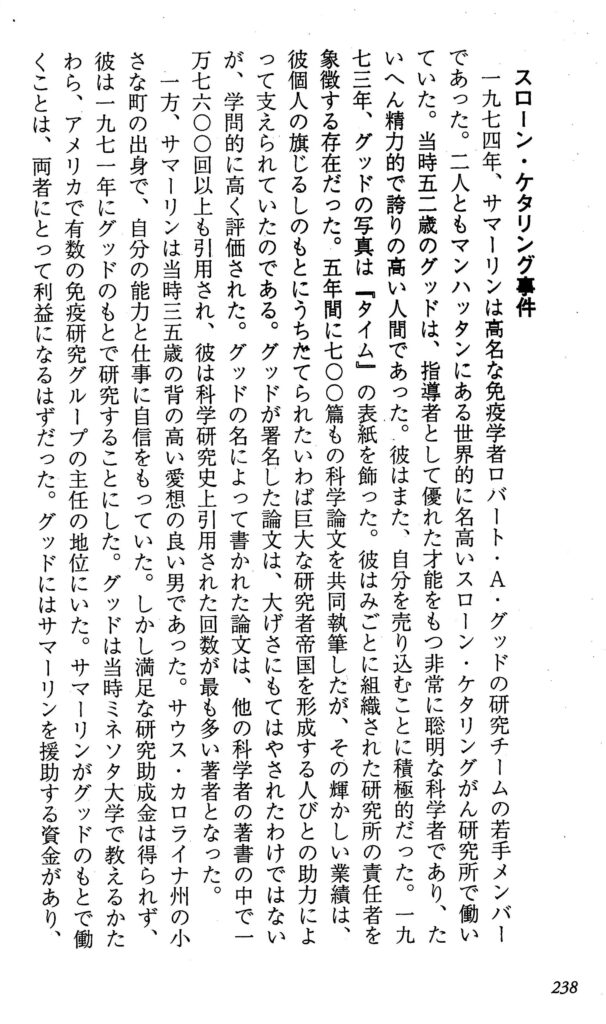 スローン・ケタリング事件
一九七四年、サマーリンは高名な免疫学者ロバート・A・グッドの研究チームの若手メンバー
であった。二人ともマンハッタンにある世界的に名高いスローン・ケタリングがん研究所で働い
ていた。当時五二歳のグッドは、指導者として優れた才能をもつ非常に聡明な科学者であり、た
いへん精力的で誇りの高い人間であった。彼はまた、自分を売り込むことに積極的だった。一九
七三年、グッドの写真は『タイム』の表紙を飾った。彼はみごとに組織された研究所の責任者を
象徴する存在だった。五年間に七〇〇篇もの科学論文を共同執筆したが、その輝かしい業績は、
彼個人の旗じるしのもとにうちたてられたいわば巨大な研究者帝国を形成する人びとの助力によ
って支えられていたのである。グッドが署名した論文は、大げさにもてはやされたわけではない
が、学問的に高く評価された。グッドの名によって書かれた論文は、他の科学者の著書の中で一
万七六〇〇回以上も引用され、彼は科学研究史上引用された回数が最も多い著者となった。
一方、サマーリンは当時三五歳の背の高い愛想の良い男であった。サウス・カロライナ州の小
さな町の出身で、自分の能力と仕事に自信をもっていた。しかし満足な研究助成金は得られず、
彼は一九七一年にグッドのもとで研究することにした。グッドは当時ミネソタ大学で教えるかた
わら、アメリカで有数の免疫研究グループの主任の地位にいた。サマーリンがグッドのもとで働
くことは、両者にとって利益になるはずだった。グッドにはサマーリンを援助する資金があり、
238